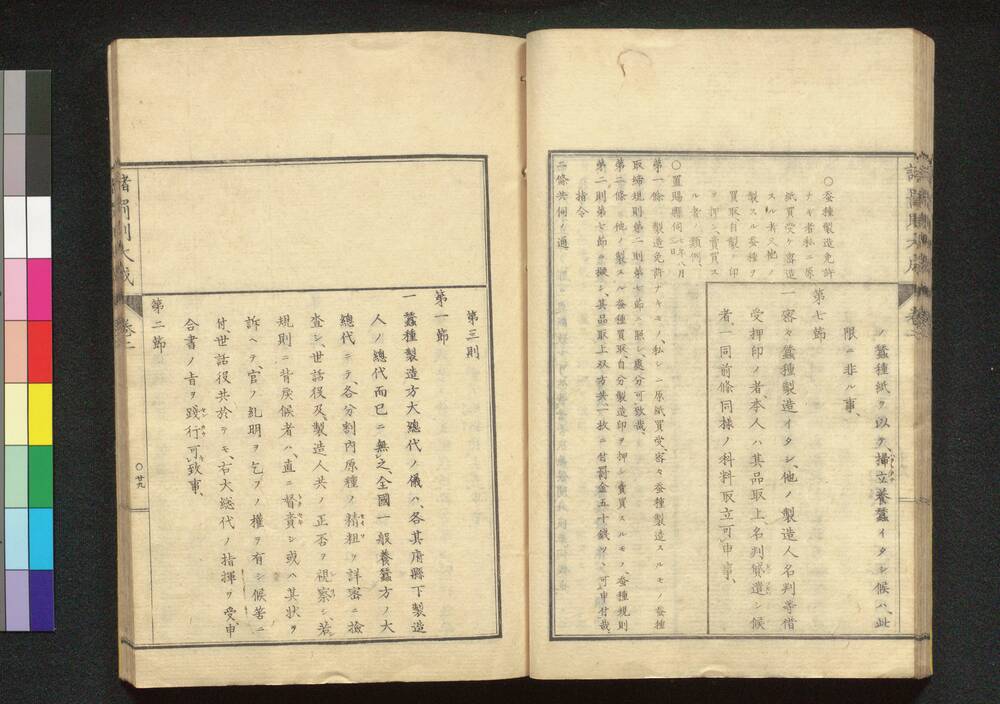 ノ蠶種紙ヲ以テ、掃立養蠶イタシ候ハ、此
限ニ非ル事、
第七節
一 窃々蠶種製造イタシ、他ノ製造人名判等借
受押印ノ者、本人ハ其品取上、名判貸遣シ候
者、一同前條同様ノ科料取立可申事、
○蚕種製造免許
ナキ者私ニ原
紙買受ケ窃造
スル者又他ノ
製スル蚕種ヲ
買取、自製ノ印
ヲ押シ、賣買ス
ル者ノ類例、
○置賜縣伺 七年八月
第一條 製造免許ナキモノ、私シニ原紙買受、窃々蚕種製造スルモノ、蚕種
取締規則第二則第七節ニ照シ、處分可致哉、
第二條 他ノ製スル蚕種買取、自分製造印ヲ押シ、賣買スルモノ、蚕種規則
第二則第七節ニ擬シ、其品取上双方共、一枚ニ付罰金五十錢ツヽ、可申付哉、
指令
二條共伺ノ通
諸罰則大成
卷二
第三則
第一節
一 蠶種製造方大總代ノ儀ハ、各其府縣下製造
人ノ總代而已ニ無之、全國一般養蠶方ノ大
總代ニテ、各分割内原種ノ精粗ヲ詳密ニ撿
査シ、世話役及製造人共ノ正否ヲ視察シ、若
規則ニ背戾候者ハ、直ニ督責シ或ハ其状ヲ
訴ヘテ、官ノ糺明ヲ乞フノ權ヲ有シ候筈ニ
付、世話役共於テモ、右大總代ノ指揮ヲ受、申
合書ノ旨ヲ踐行可致事、
第二節
○廿九